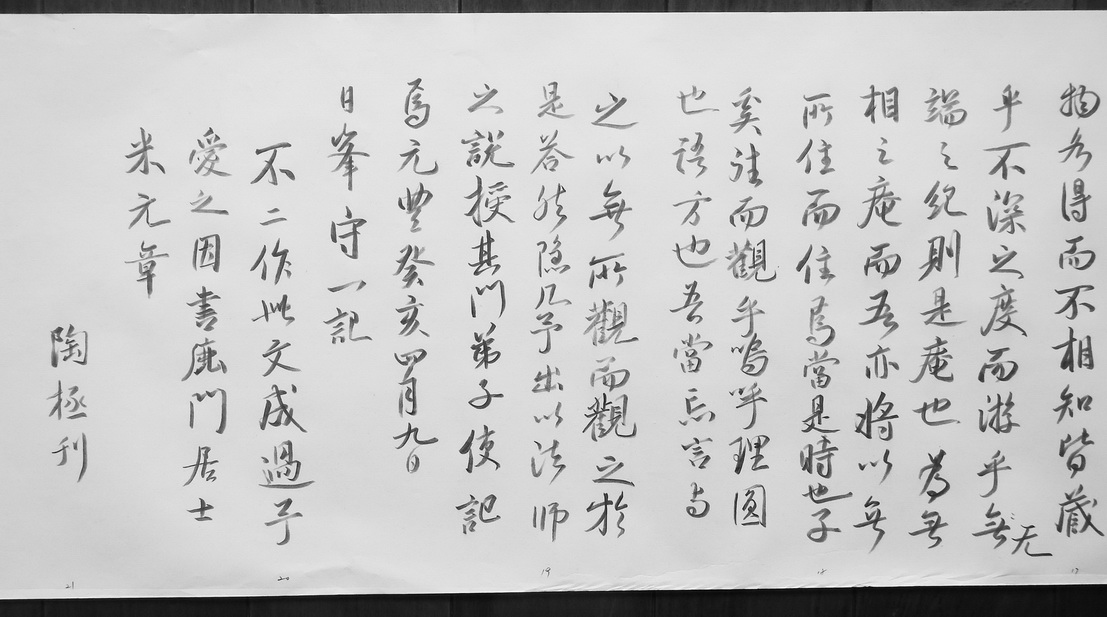 物各得而不相知皆藏
乎不深之度而游乎無
无
端之紀則是庵也為無
相之庵而吾亦將以無
所住而住焉當是時也子
奚往而觀乎嗚呼理圓
也語方也吾當忘言与
之以無所觀而觀之於
是答然隱几予出以法师
之說授其門弟子使記
焉元豐癸亥四月九日
日峯守一記
不二作此文成過予
愛之因書鹿門居士
米元章
陶極刊
19
20
21